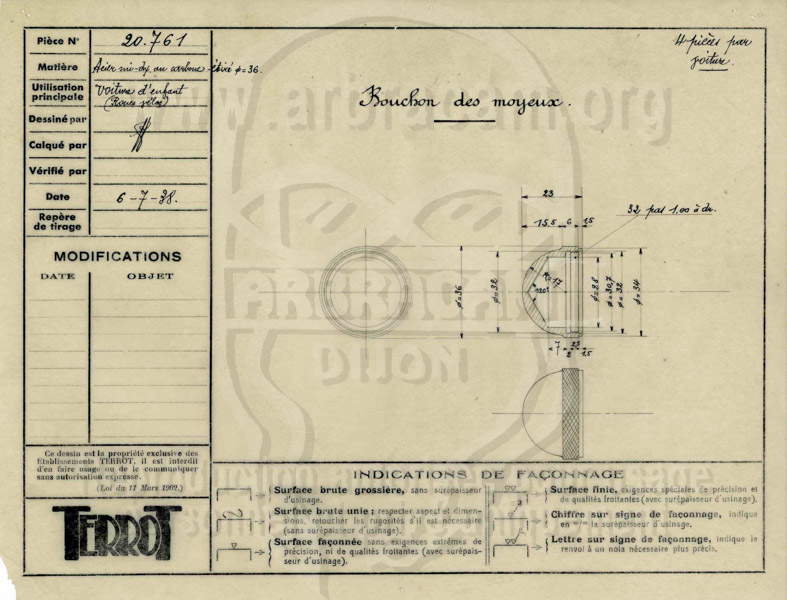 Pièce N° 20.761
Matière Acier mi-dx au carbone étiré φ=36.
Utilisation principale Voiture d'enfant
(Roues vélos)
Dessiné par
Calqué par
Vérifié par
Date 6-7-38.
Repère
de tirage
MODIFICATIONS
DATE OBJET
Ce dessin est la propriété exclusive des
Etablissements TERROT, il est interdit
d'en faire usage ou de le communiquer
sans autorisation expresse.
(Loi du 11 Mars 1902.)
TERROT
4 pièces par
voiture.
Bouchon des moyeux.
www.arbracam.org
ARBRACAM
DIJON
23
15,5 6 1,5
32 pas 1.00 à dr.
φ=36
φ=32
R=17
120°
φ=28
φ=30,7
φ=32
φ=34
7
2
1,5
INDICATIONS DE FAÇONNAGE
Surface brute grossière, sans surépaisseur
d'usinage.
Surface brute unie ; respecter aspect et dimen-
sions, retoucher les rugosités s'il est nécessaire
(sans surépaisseur d'usinage).
Surface façonnée sans exigences extrêmes de
précision, ni de qualités frottantes (avec surépais-
seur d'usinage).
Surface finie, exigences spéciales de précision et
de qualités frottantes (avec surépaisseur d'usinage).
Chiffre sur signe de façonnage, indique
en m/m la surépaisseur d'usinage.
Lettre sur signe de façonnage, indique le
renvoi à un nota nécessaire plus précis.